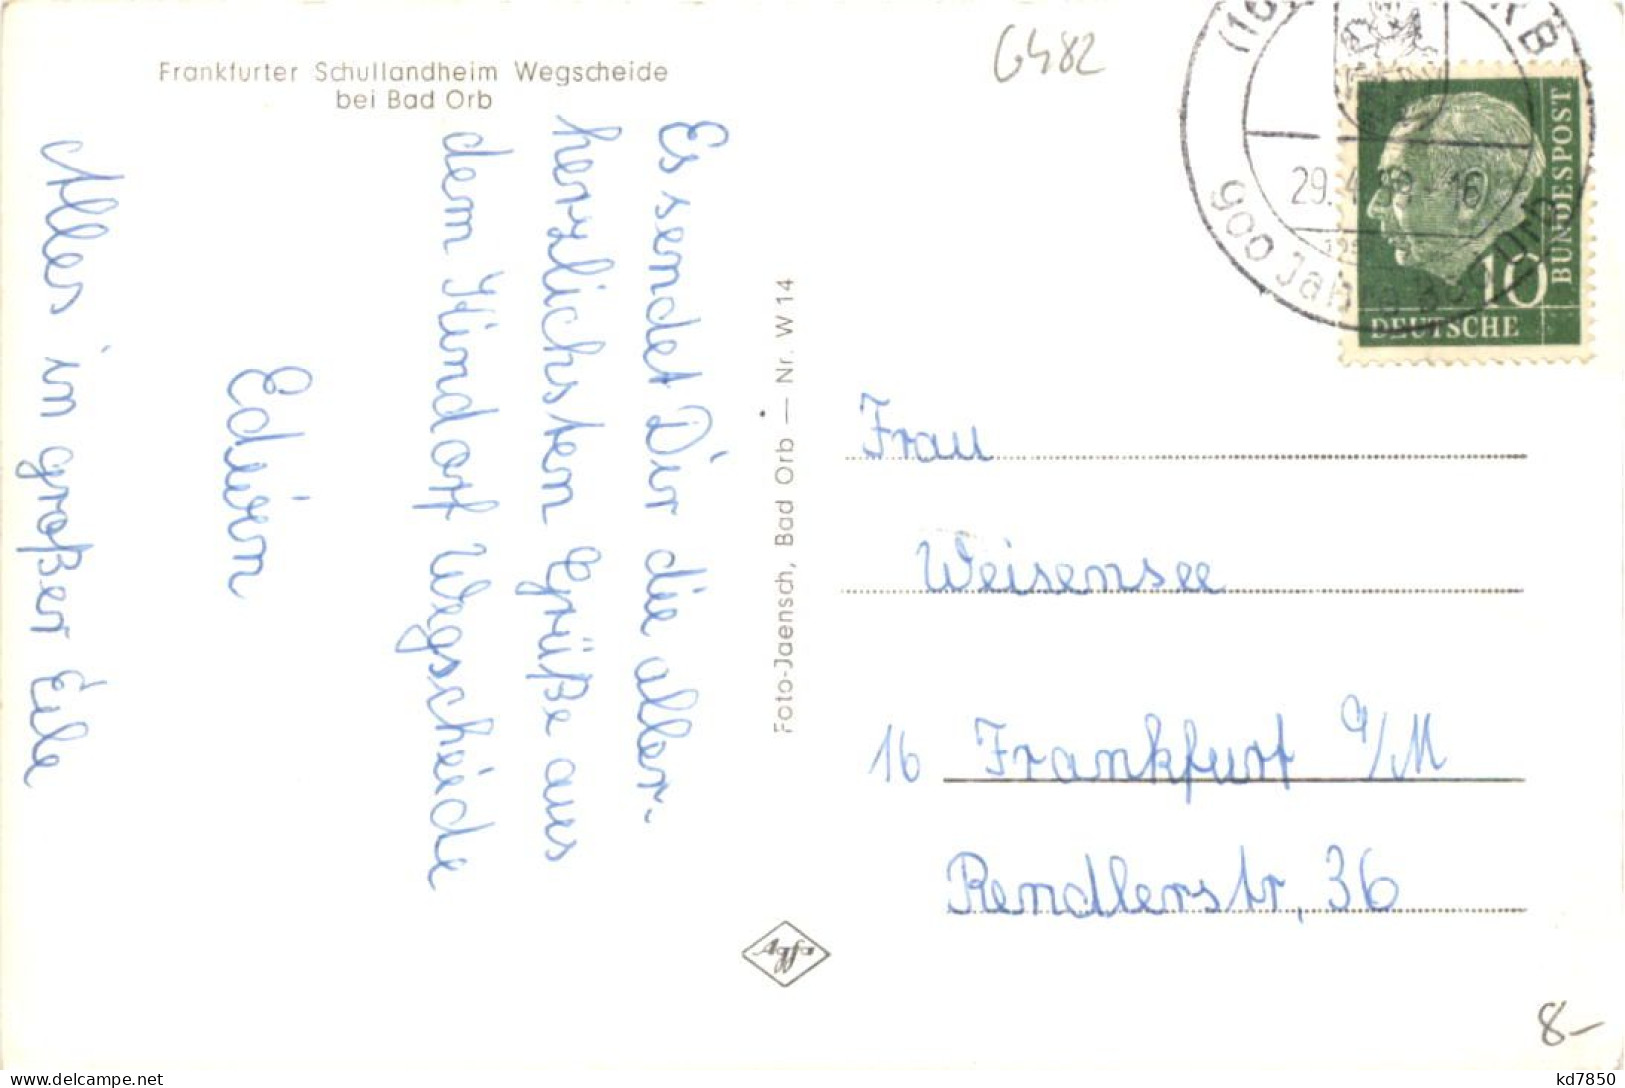 Frankfurter Schullandheim Wegscheide
bei Bad Orb
Es sendet Dir die aller-
herzlichsten Grüße aus
dem Kindorf Wegscheide
Edwin
Alles in großer Eile
Foto-Jaensch, Bad Orb — Nr. W 14
Agfa
6482
29.4. - 16
900 Jahre Bad Orb
BUNDESPOST
10
DEUTSCHE
Frau
Weisensee
16 Frankfurt a/M
Rendlerstr. 36
8-
kd7850